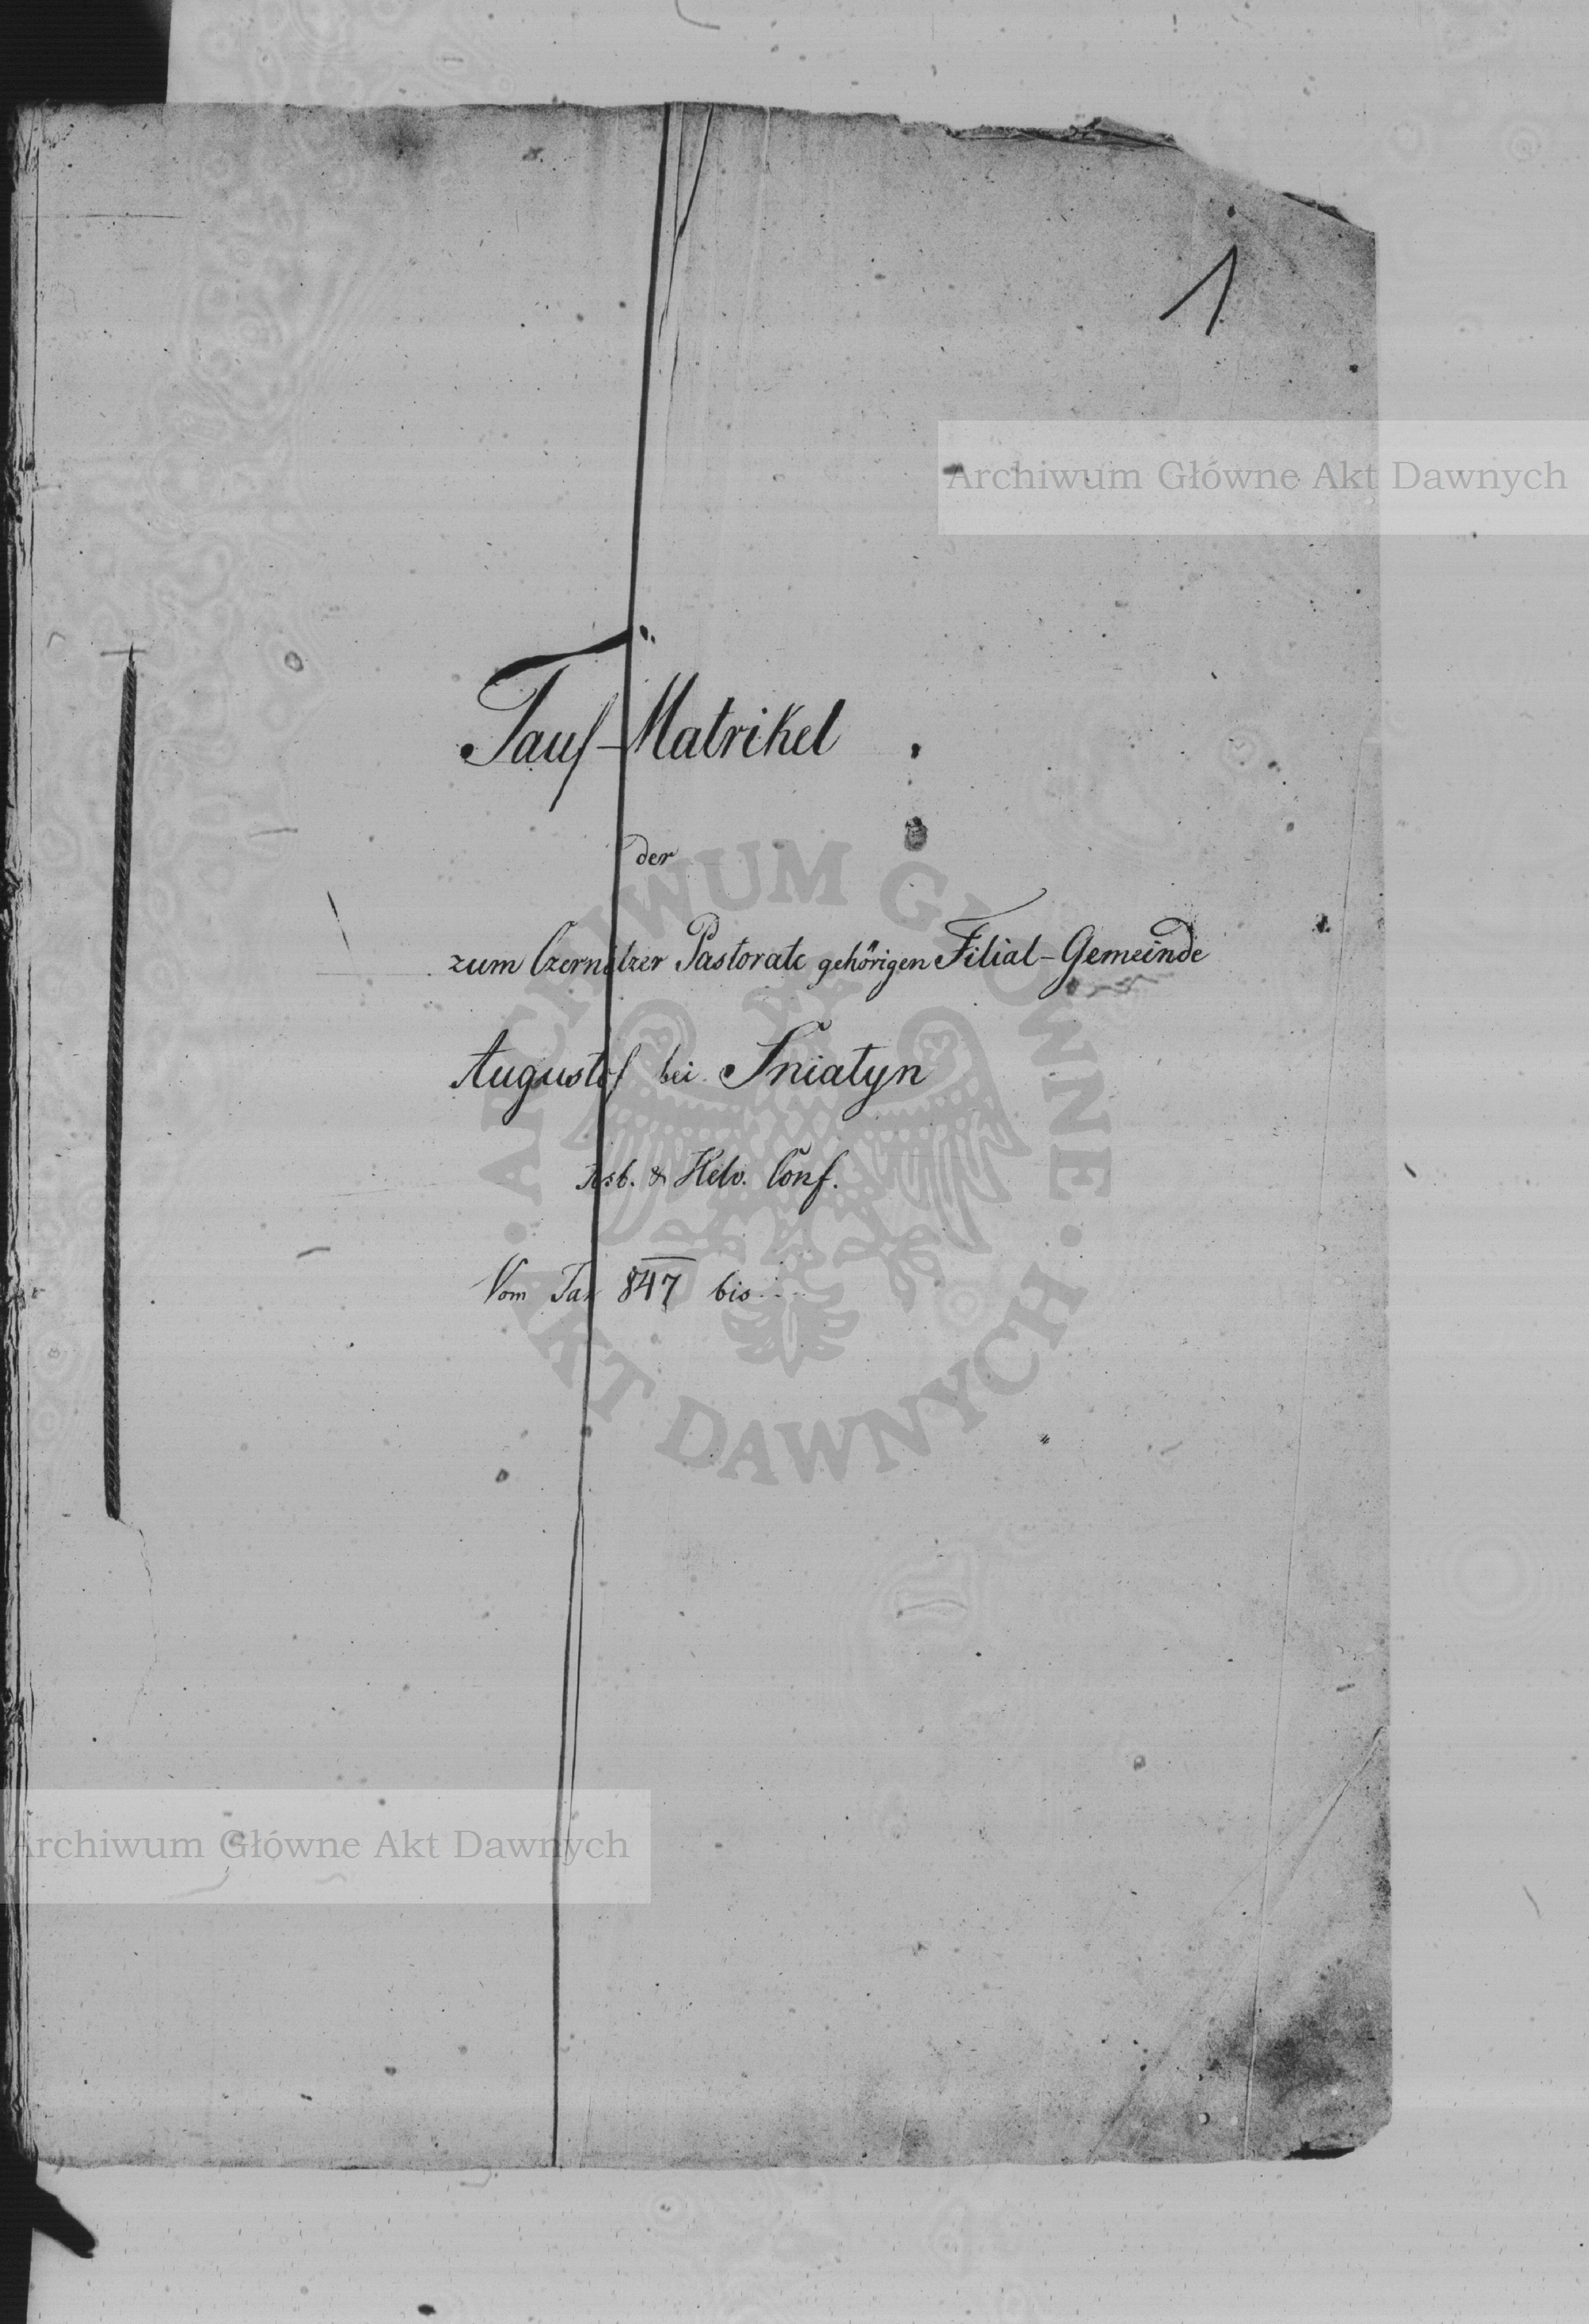 1
Archiwum Główne Akt Dawnych
Tauf-Matrikel
der
zum Czernitzer Pastorate gehörigen Filial-Gemeinde
bei Sniatyn
& Helv. Conf.
Vom 847 bis
ARCHIWUM GŁÓWNE
AKT DAWNYCH
Archiwum Główne Akt Dawnych